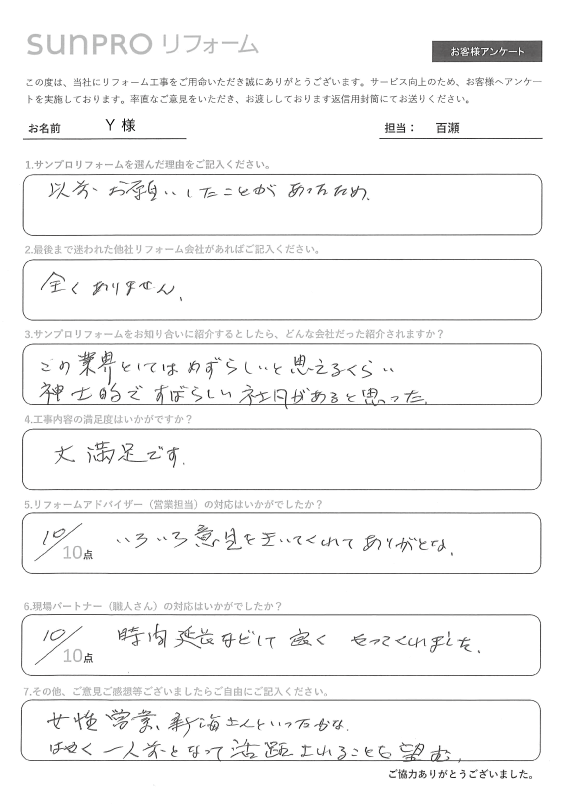 SUNPRO リフォーム
お客様アンケート
この度は、当社にリフォーム工事をご用命いただき誠にありがとうございます。サービス向上のため、お客様へアンケー
トを実施しております。率直なご意見をいただき、お渡ししております返信用封筒にてお送りください。
お名前 Y 様 担当： 百瀬
1.サンプロリフォームを選んだ理由をご記入ください。
以前、お願いしたことがあったため、
2.最後まで迷われた他社リフォーム会社があればご記入ください。
全くありません、
3.サンプロリフォームをお知り合いに紹介するとしたら、どんな会社だった紹介されますか？
この業界としてはめずらしいと思えるくらい
紳士的ですばらしい社員があると思った。
4.工事内容の満足度はいかがですか？
大満足です。
5.リフォームアドバイザー（営業担当）の対応はいかがでしたか？
10/10点 いろいろ意見をきいてくれてありがとな、
6.現場パートナー（職人さん）の対応はいかがでしたか？
10/10点 時間延長などして良くやってくれました、
7.その他、ご意見ご感想等ございましたらご自由にご記入ください。
女性営業、新海さんといったかな、
はやく一人前となって活躍されることを望む、
ご協力ありがとうございました。